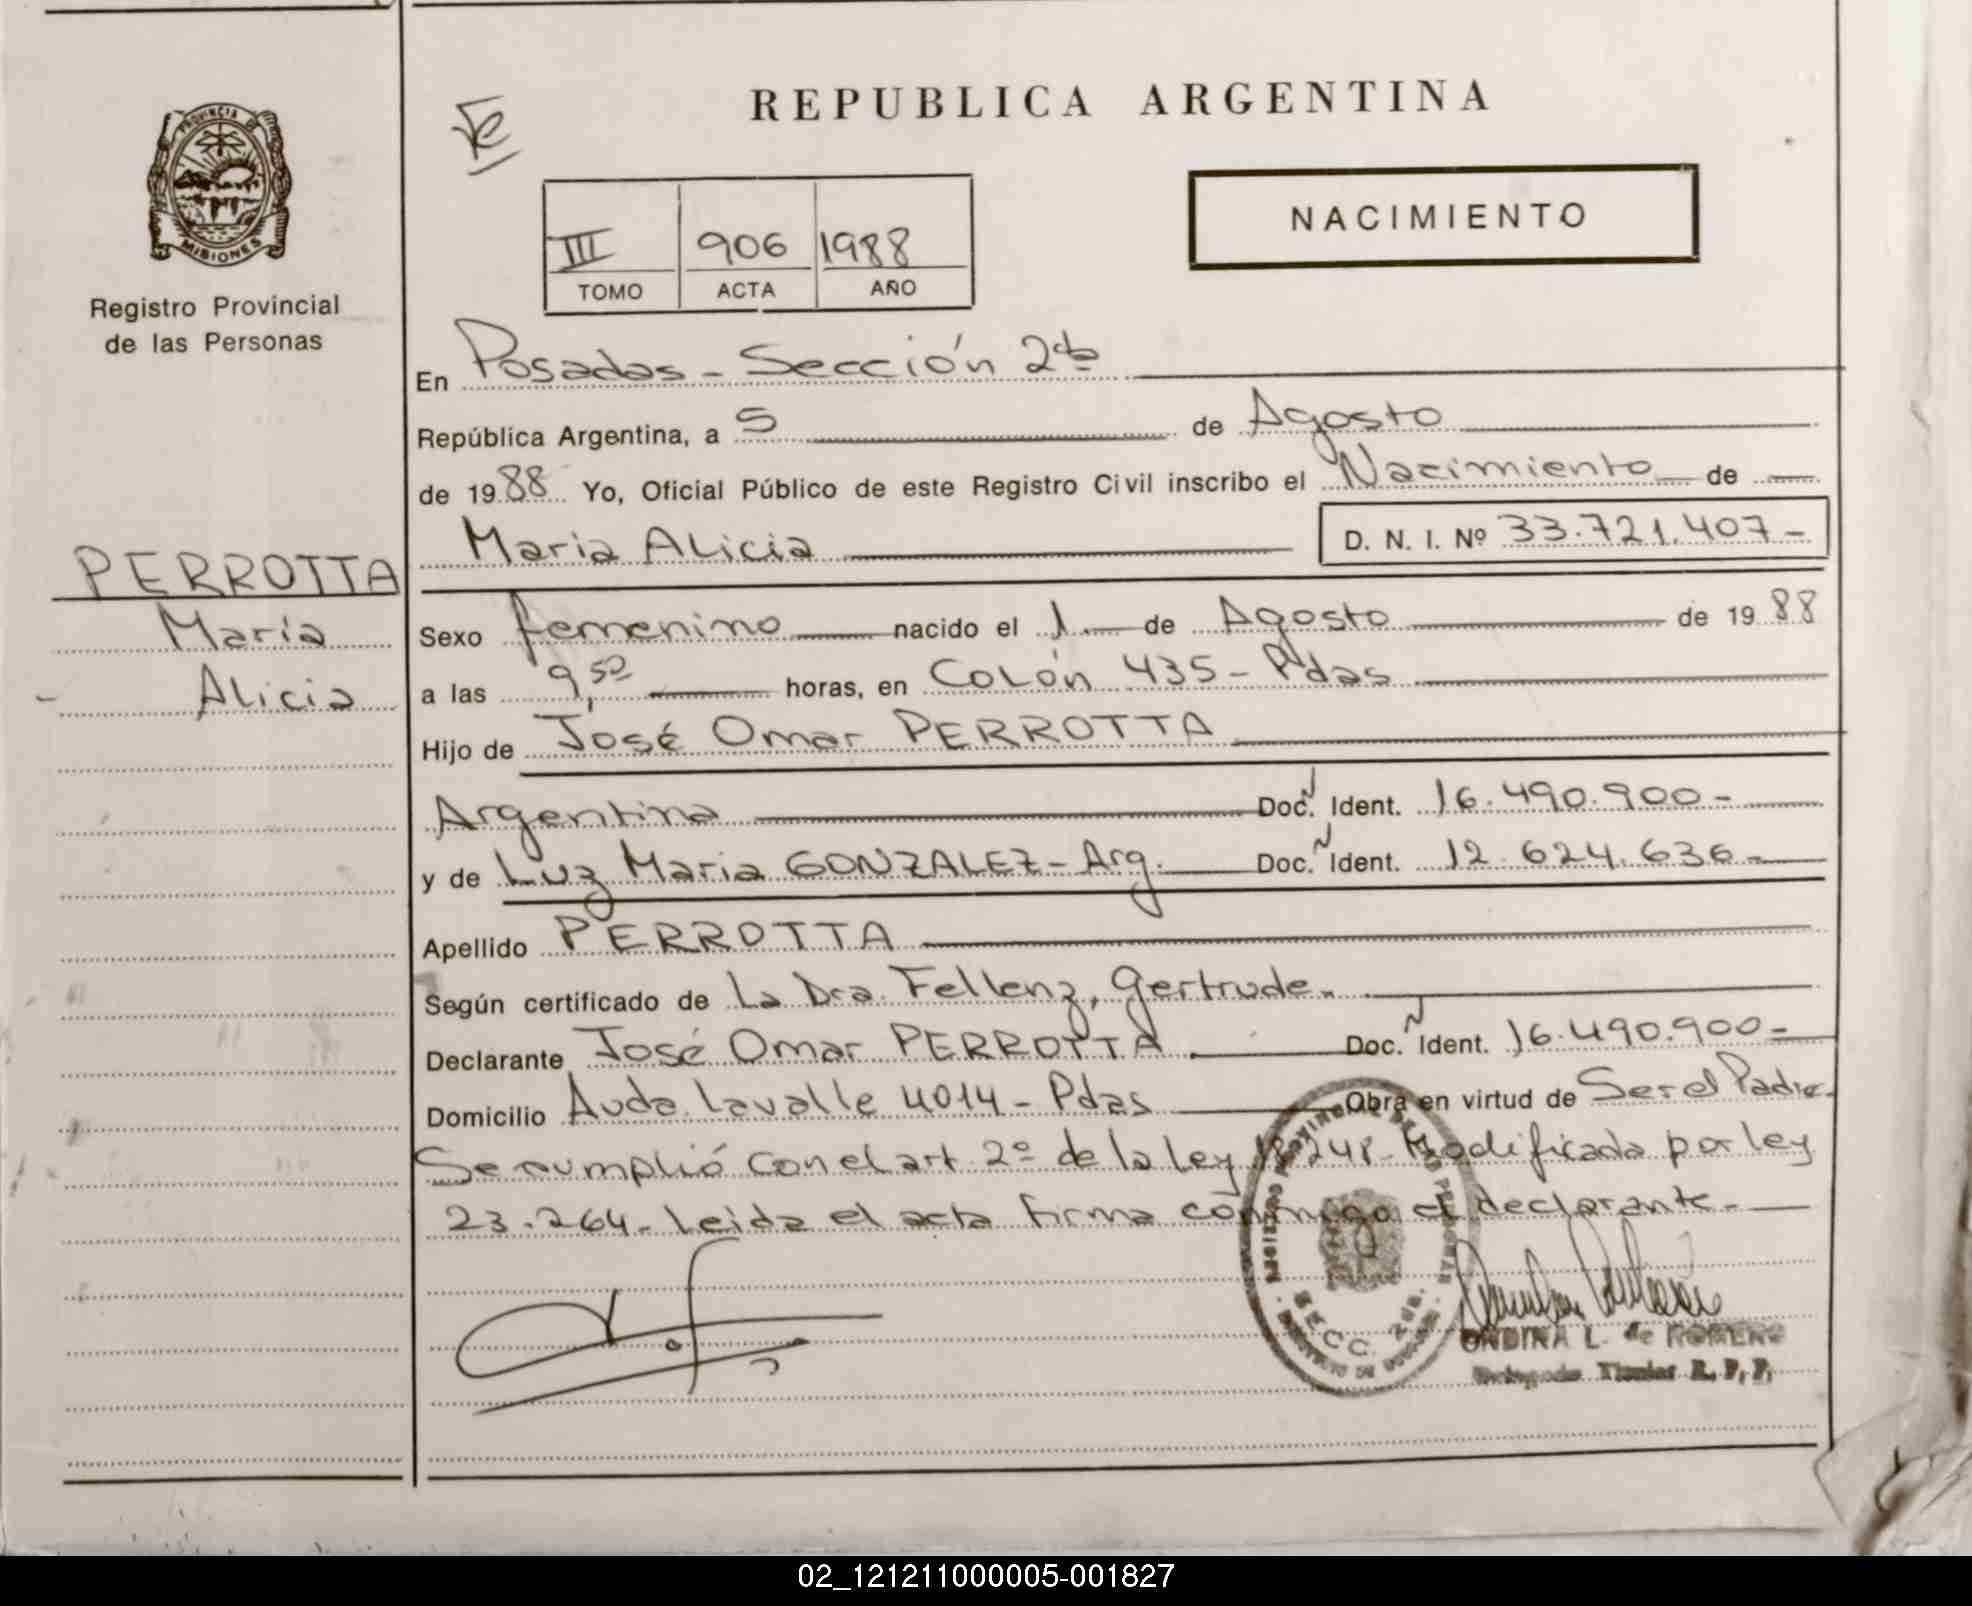 REPUBLICA ARGENTINA
PROVINCIA DE
MISIONES
Registro Provincial
de las Personas
NACIMIENTO
III 906 1988
TOMO ACTA AÑO
En Posadas - Sección 2da
República Argentina, a 5 de Agosto
de 1988 Yo, Oficial Público de este Registro Civil inscribo el Nacimiento de
Maria Alicia D. N. I. Nº 33.721.407-
PERROTTA
María
Alicia
Sexo femenino nacido el 1 de Agosto de 1988
a las 9,50 horas, en Colón 435 - Pdas
Hijo de José Omar PERROTTA
Argentina Doc. Ident. 16.490.900-
y de Luz Maria GONZALEZ - Arg. Doc. Ident. 12.624.636-
Apellido PERROTTA
Según certificado de La Dra. Fellenz, Gertrude.
Declarante José Omar PERROTTA Doc. Ident. 16.490.900-
Domicilio Avda. Lavalle 4014 - Pdas Obra en virtud de Ser el Padre.
Se cumplió con el art. 2º de la ley 18248 - Modificada por ley
23.264 - Leida el acta firma conmigo el declarante.-
SECC. 2da.
ONDINA L. de ROMERO
Titular R. P. P.
02_121211000005-001827